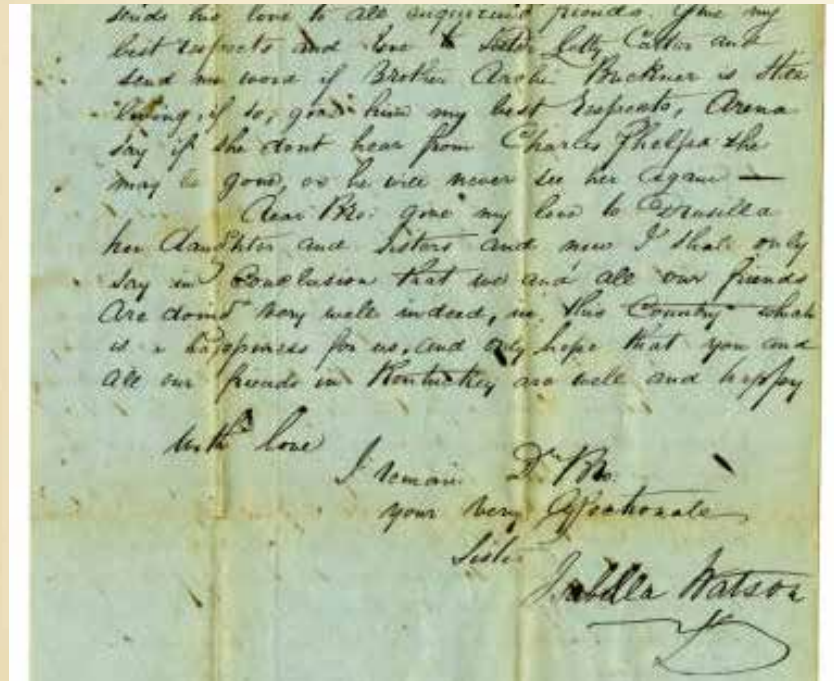 sends his love to all enquiring friends. Give my
best respects and love to Sister Letty Carter and
send me word if Brother Archi Buckner is still
living, if so, give him my best respects, Arena
say if she dont hear from Charles Phelps she
may be gone, as he will never see her again —
Dear Bro: give my love to Drusilla
her daughter and Sisters and now I shall only
say in Conclusion that we and all our friends
are doing very well indeed, in this Country which
is a happiness for us, and only hope that you and
all our friends in Kentuckey are well and happy
With love
I remain Dr. Bro.
your very affectionate
Sister
Isabella Watson